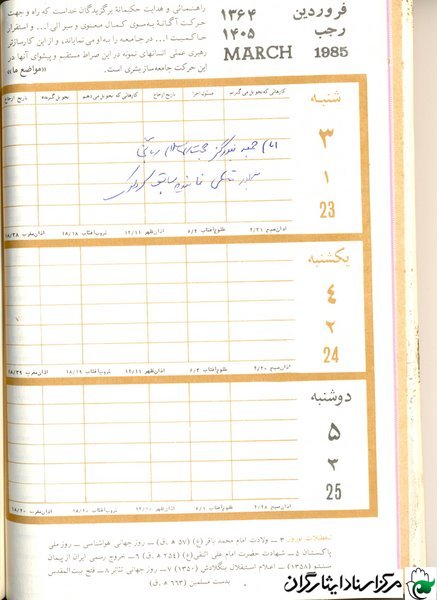 فروردین ۱۳۶۴
رجب ۱۴۰۵
MARCH 1985
راهنمائی و هدایت حکیمانهٔ برگزیدگان خداست که راه و جهت
حرکت آگانهٔ بسوی کمال معنوی و سیر الی ... و استقرار
حاکمیت ا... در جامعه را به او می نمایاند، و از این کارسازتر
رهبری عملی انسانهای نمونه در این صراط مستقیم و پیشوائی آنها در
این حرکت جامعه ساز بشری است. «مواضع ما»
شنبه
کارهائی که تحویل می گیرم مسئول اجرا تاریخ ارجاع کارهائی که تحویل می دهم تحویل گیرنده تاریخ ارجاع
۳
۱
23
امام جمعه
اذان صبح ۴/۳۱ طلوع آفتاب ۶/۲ اذان ظهر ۱۲/۱۱ غروب آفتاب ۱۸/۱۸ اذان مغرب ۱۸/۳۸
یکشنبه
۴
۲
24
اذان صبح ۴/۳۰ طلوع آفتاب ۶/۲ اذان ظهر ۱۲/۱۱ غروب آفتاب ۱۸/۱۹ اذان مغرب ۱۸/۳۹
دوشنبه
۵
۳
25
اذان صبح ۴/۲۸ طلوع آفتاب ۶/۱ اذان ظهر غروب آفتاب اذان مغرب
تعطیلات نوروز. ۳ــ ولادت امام محمد باقر (ع) (۵۷ ه‍.ق) ــ روز جهانی هواشناسی ــ روز ملی
پاکستان ۵ــ شهادت حضرت امام علی النقی (ع) (۲۵۴ ه‍.ق) ۶ــ خروج رسمی ایران از پیمان
سنتو (۱۳۵۸) ــ اعلام استقلال بنگلادش (۱۳۵۰) ۷ــ روز جهانی تئاتر ۸ــ فتح بیت المقدس
بدست مسلمین (۶۶۳ ه‍.ق)
مرکز اسناد ایثارگران